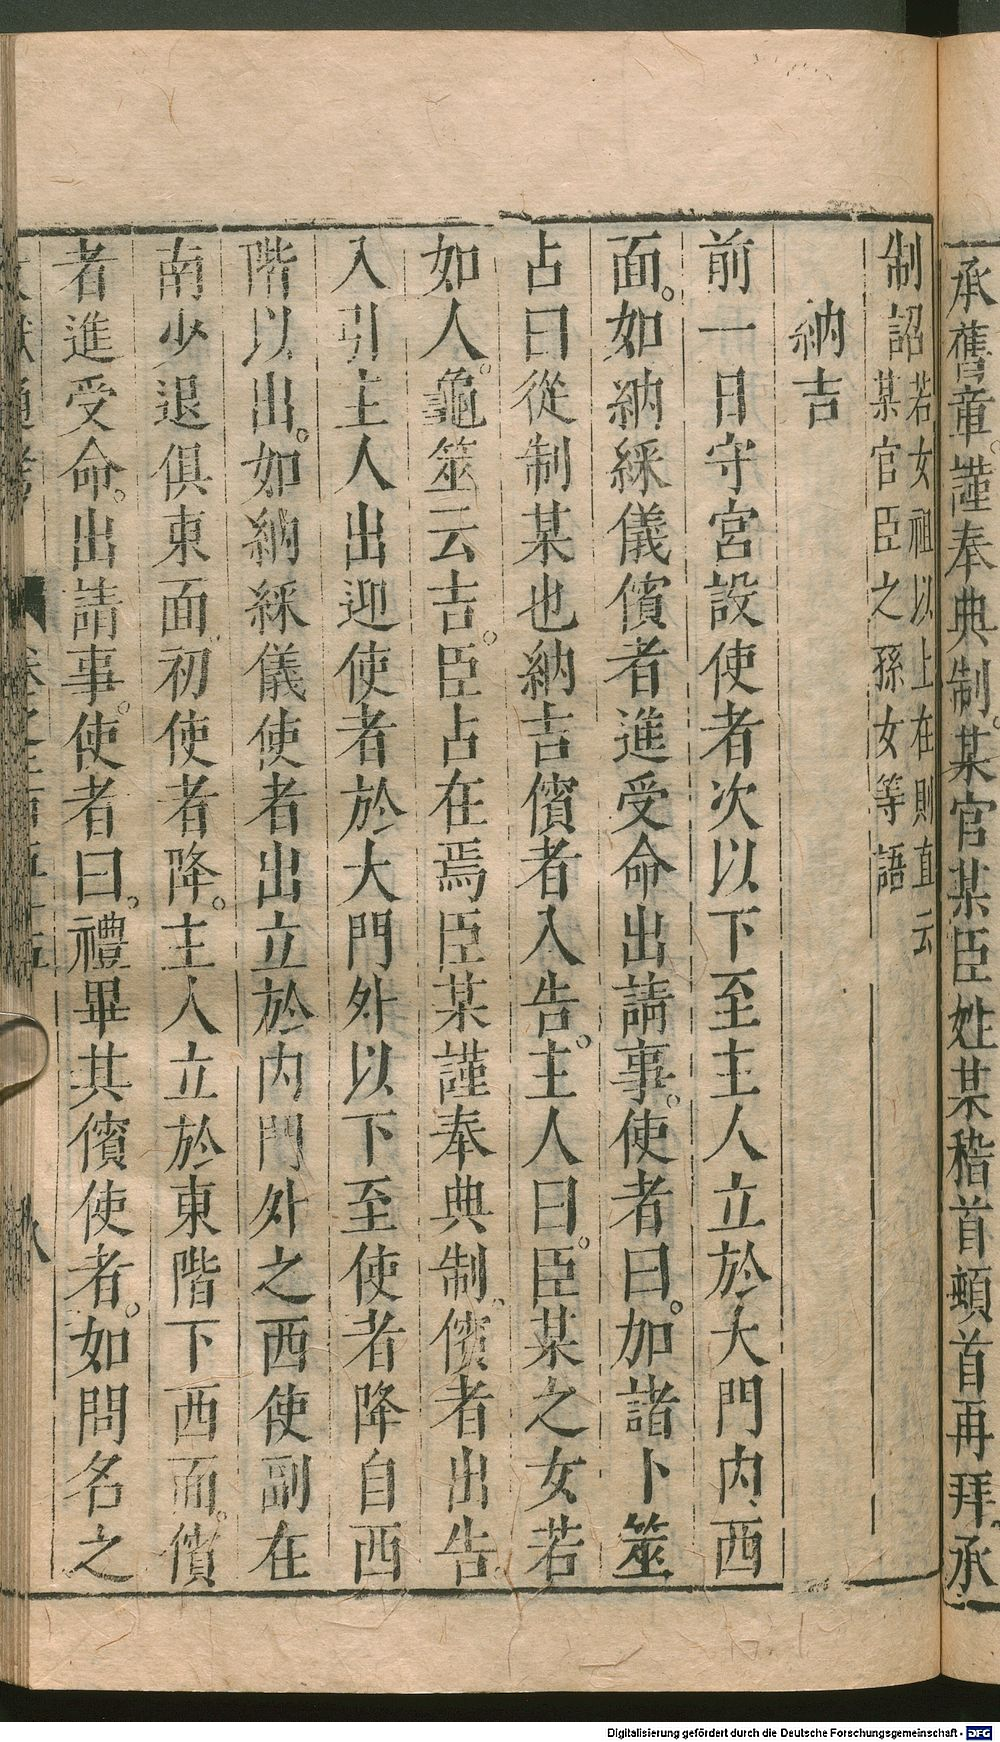 承舊章。謹奉典制。某官某臣姓某稽首頓首再拜承
制詔若女祖以上在則直云
某官臣之孫女等語
納吉
前一日守宮設使者次以下至主人立於大門內西
面。如納綵儀儐者進受命出請事。使者曰。加諸卜筮
占曰從制某也納吉儐者入告。主人曰。臣某之女若
如人。龜筮云吉。臣占在焉臣某謹奉典制。儐者出告。
入引主人出迎使者於大門外以下至使者降自西
階以出。如納綵儀使者出立於內門外之西使副在
南少退俱東面。初使者降。主人立於東階下西面。儐
者進受命。出請事。使者曰。禮畢其儐使者。如問名之
Digitalisierung gefördert durch die Deutsche Forschungsgemeinschaft - DFG